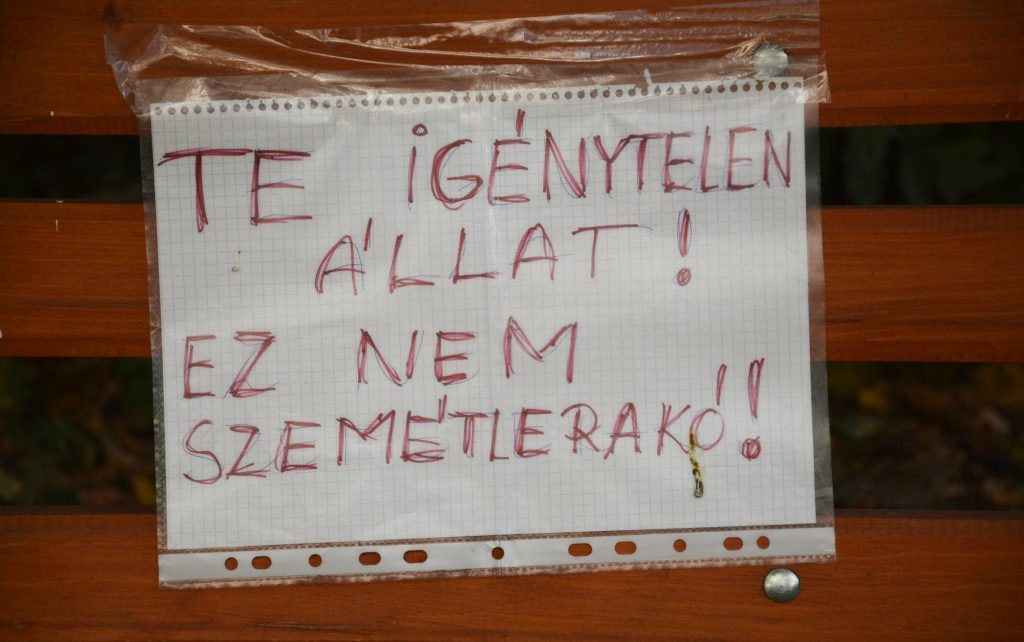 TE IGÉNYTELEN
ÁLLAT!
EZ NEM
SZEMÉTLERAKÓ!!